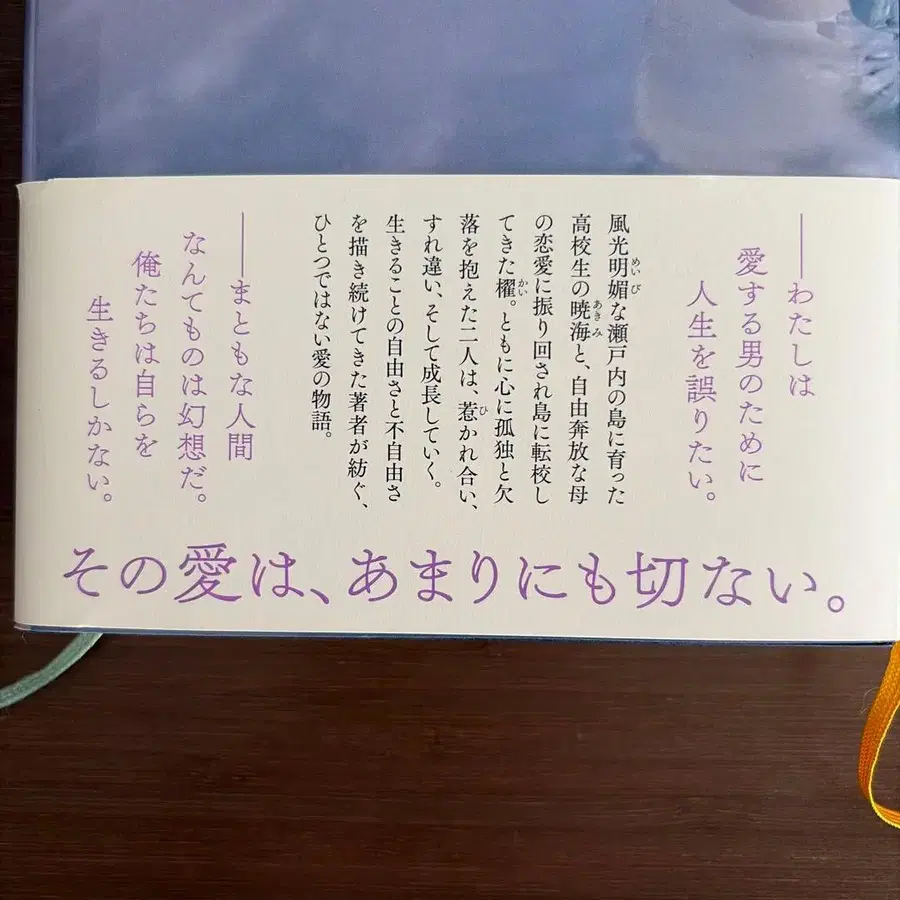 ――わたしは
愛する男のために
人生を誤りたい。
風光明媚な瀬戸内の島に育った
高校生の暁海と、自由奔放な母
の恋愛に振り回され島に転校し
てきた櫂。ともに心に孤独と欠
落を抱えた二人は、惹かれ合い、
すれ違い、そして成長していく。
生きることの自由さと不自由さ
を描き続けてきた著者が紡ぐ、
ひとつではない愛の物語。
――まともな人間
なんてものは幻想だ。
俺たちは自らを
生きるしかない。
その愛は、あまりにも切ない。